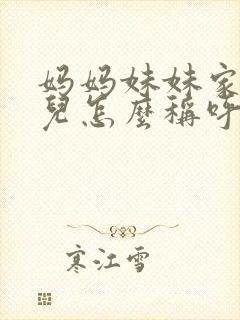 妈妈妹妹家
兒怎麼稱呼
寒江雪